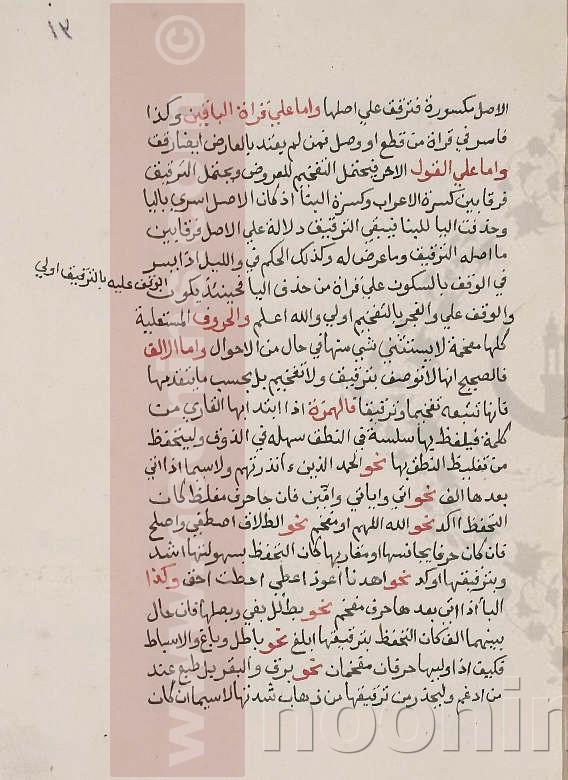 ١٣
الاصل مكسورة فترقق علي اصلها واما علي قراة الباقين وكذا
فاسر في قراة من قطع او وصل فمن لم يعتد بالعارض ايضا رقق
واما علي القول الاخر فيحتمل التفخيم للعروض ويحتمل الترقيق
فرقا بين كسرة الاعراب وكسرة البنا اذ كان الاصل اسري باليا
وحذفت اليا للبنا فيبقي الترقيق دلالة علي الاصل وفرقا بين
ما اصله الترقيق وما عرض له وكذلك الحكم في والليل اذا يسر
في الوقف بالسكون علي قراة من حذف اليا فحينئذ يكون
الوقف عليه بالترقيق اولي
والوقف علي والفجر بالتفخيم اولي والله اعلم والحروف المستعلية
كلها مفخمة لا يستثني شي منها في حال من الاحوال واما الالف
فالصحيح انها لا توصف بترقيق ولا تفخيم بل بحسب ما يتقدمها
فانها تتبعه تفخيما وترقيقا فالهمزة اذا ابتدا بها القاري من
كلمة فيلفظ بها سلسة في النطق سهلة في الذوق وليتحفظ
من تغليظ النطق بها نحو الحمد الذين ءانذرتهم ولا سيما اذا اتي
بعدها الف نحو اتي واياتي وامين فان جا حرف مغلظ كان
التحفظ اكد نحو الله اللهم او مفخم نحو الطلاق اصطفي واصلح
فان كان حرفا يجانسها او مقاربها كان التحفظ بسهولتها اشد
وبترقيقها اوكد نحو اهدنا اعوذ اعطي احطت احق وكذا
البا اذا اتي بعدها حرف مفخم نحو بطل بغي وبصلها فان حال
بينهما الف كان التحفظ بترقيقها ابلغ نحو باطل وباغ والاسباط
فكيف اذا وليها حرفان مفخمان نحو برق والبقر بل طبع عند
من ادغم وليحذر من ترقيقها من ذهاب شدتها لا سيما ان كان
noonin